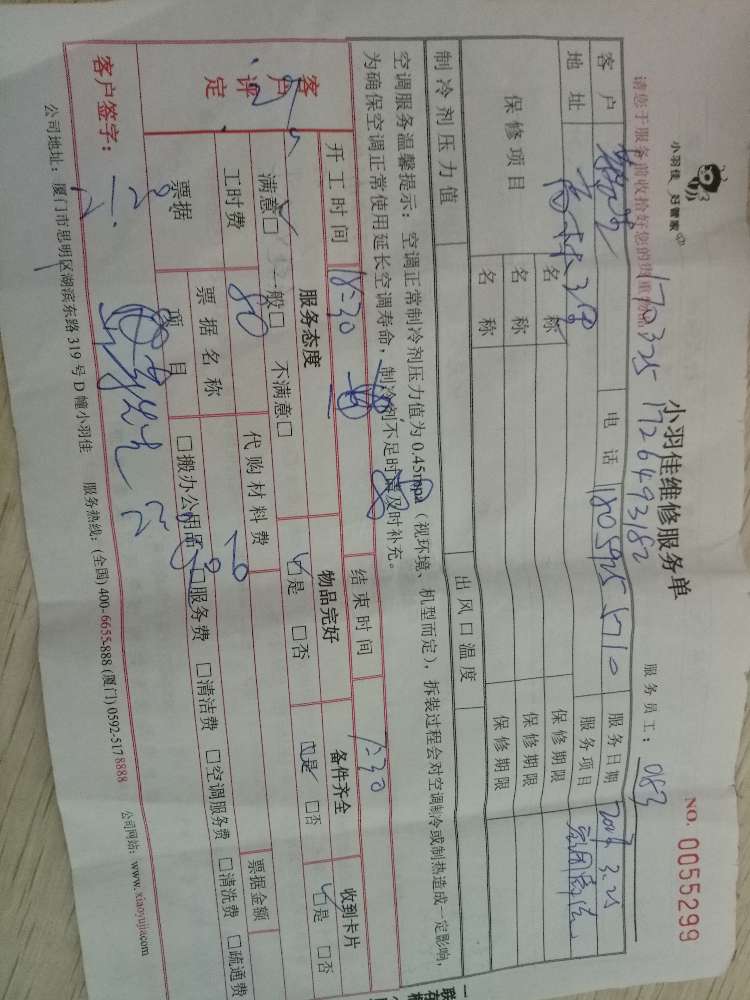 小羽佳 好管家
小羽佳维修服务单
NO. 0055299
请您于服务前收拾好您的贵重物品
170325 1726493182
服务员工： 083
客户
电话
服务日期
3.25
地址
服务项目
保修项目
名称
保修期限
名称
保修期限
名称
保修期限
制冷剂压力值
出风口温度
空调服务温馨提示：空调正常制冷剂压力值为0.45mpa（视环境、机型而定），拆装过程会对空调制冷或制热造成一定影响，
为确保空调正常使用延长空调寿命，制冷剂不足时请及时补充。
客户评定
开工时间
结束时间
服务态度
物品完好
备件齐全
收到卡片
满意□ 一般□ 不满意□
□是 □否
□是 □否
□是 □否
工时费
80
代购材料费
票据金额
票据
票据名称
项目
□搬办公用品 □服务费 □清洁费 □空调服务费 □清洗费 □疏通费
客户签字：
公司地址：厦门市思明区湖滨东路319号D幢小羽佳 服务热线：(全国)400-6655-888 (厦门)0592-5178888 公司网站：www.xiaoyujia.com